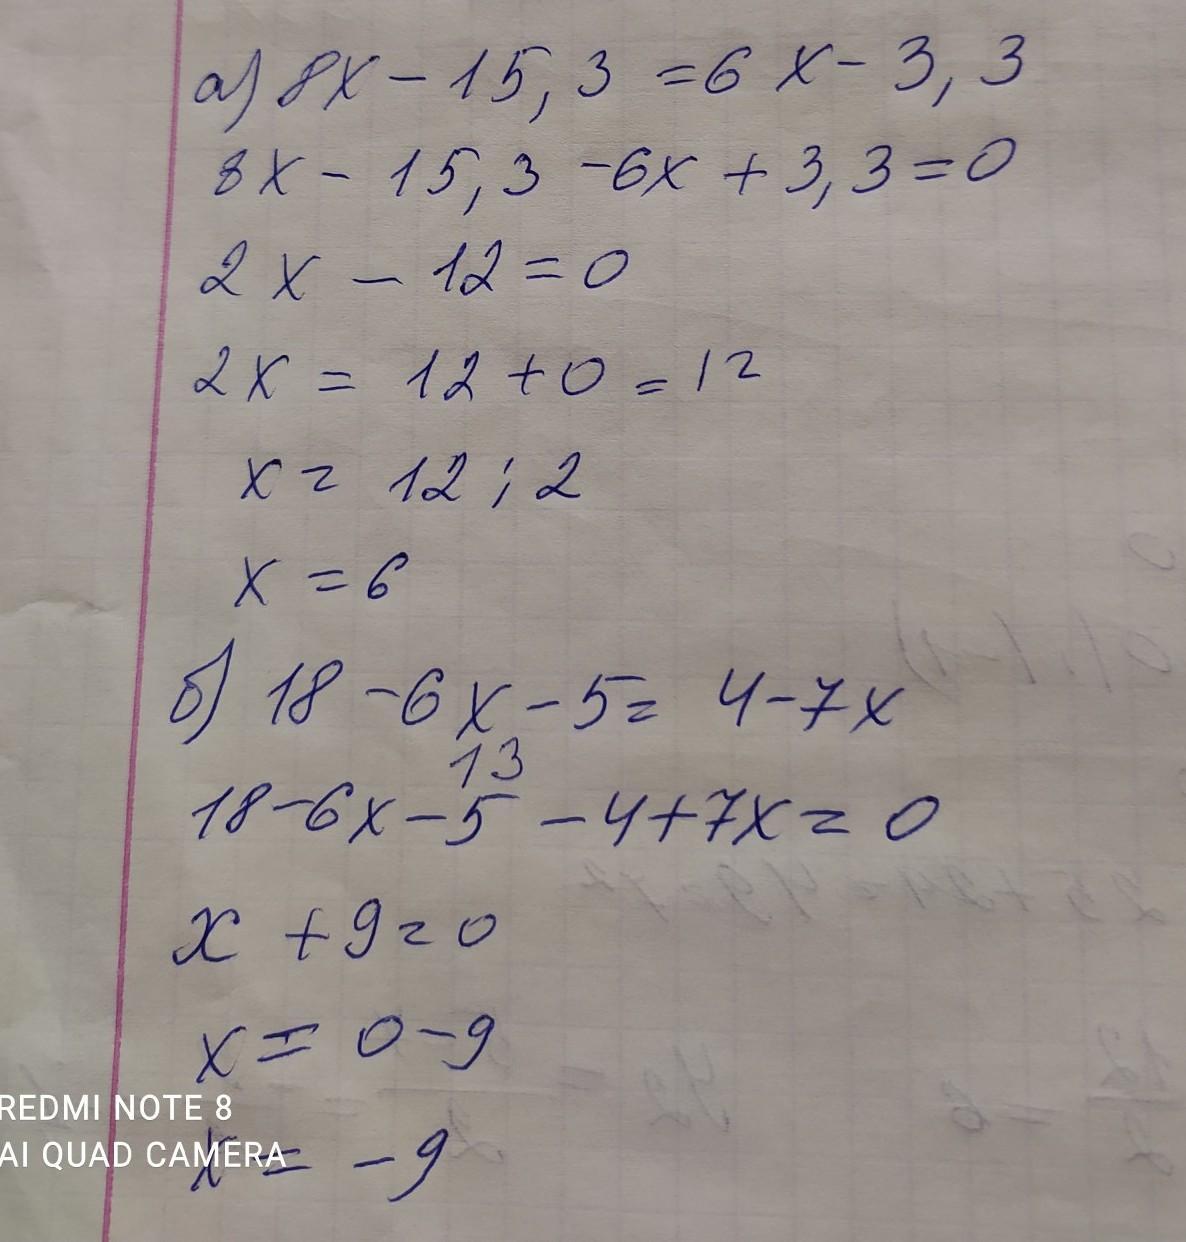 а) 8x - 15,3 = 6x - 3,3
8x - 15,3 - 6x + 3,3 = 0
2x - 12 = 0
2x = 12 + 0 = 12
x = 12 : 2
x = 6
б) 18 - 6x - 5 = 4 - 7x
13
18 - 6x - 5 - 4 + 7x = 0
x + 9 = 0
x = 0 - 9
REDMI NOTE 8
AI QUAD CAMERA
x = -9